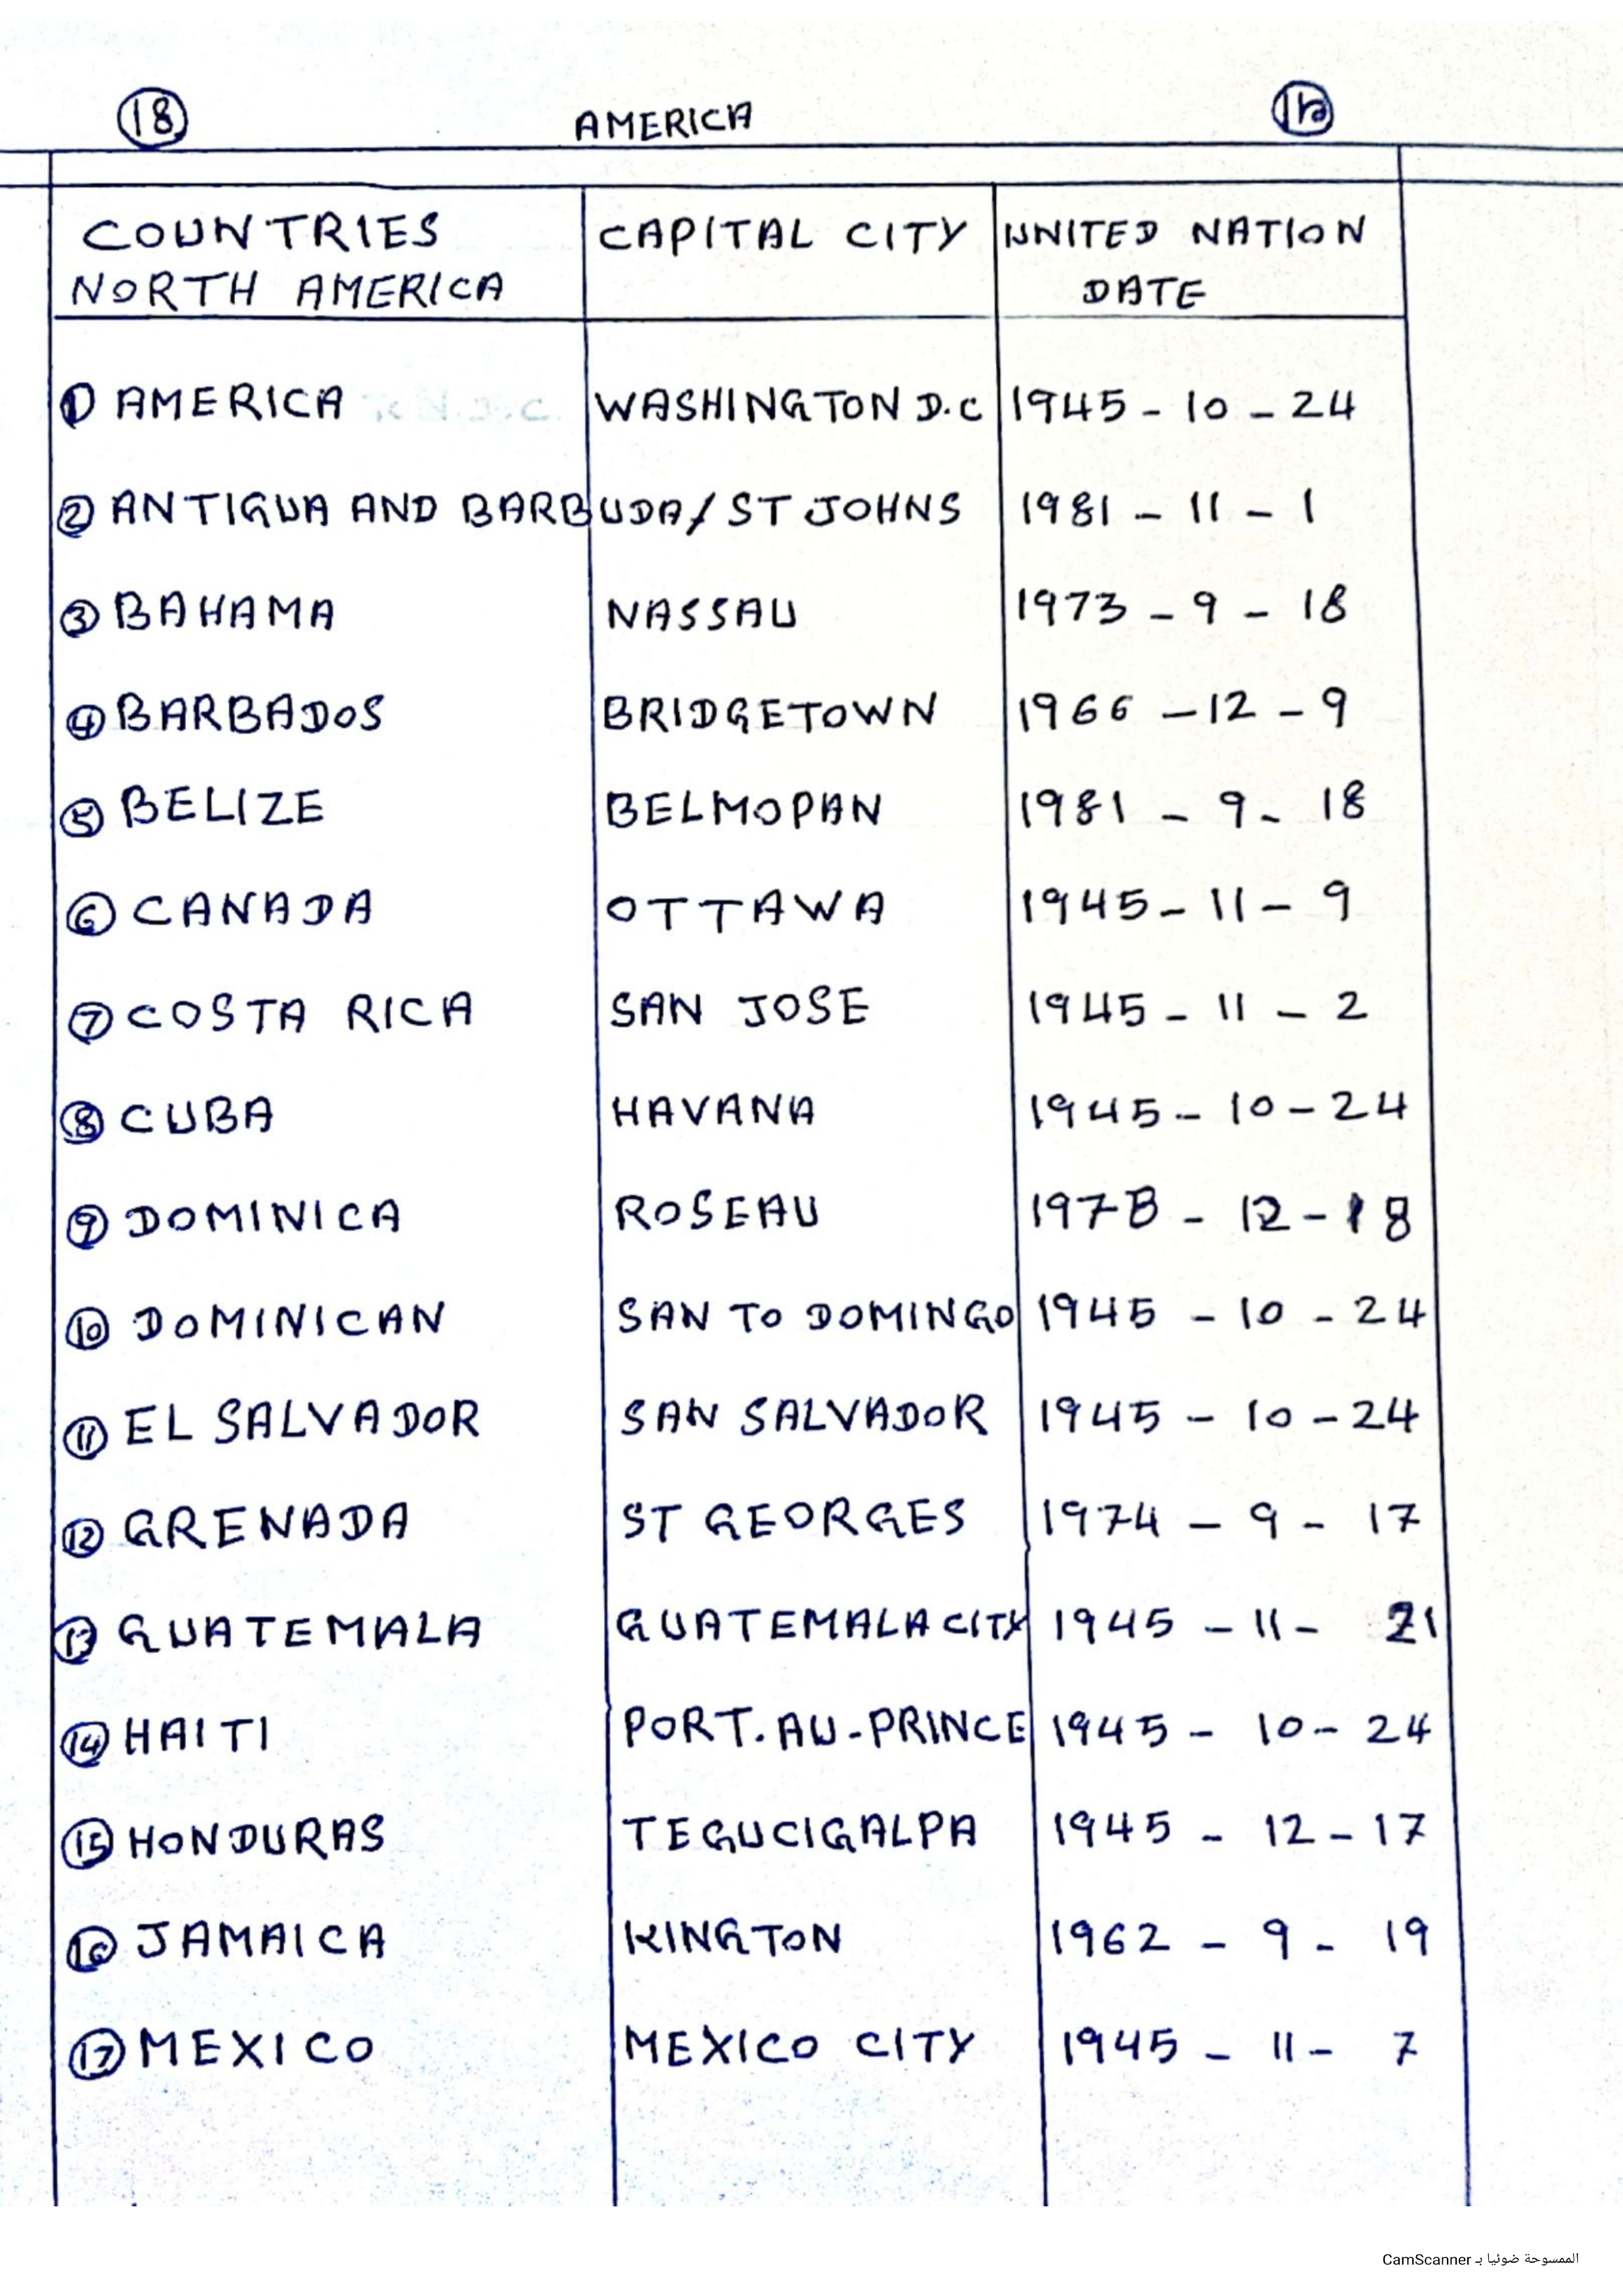 18 AMERICA
COUNTRIES CAPITAL CITY UNITED NATION
NORTH AMERICA DATE
1 AMERICA WASHINGTON D.C 1945 - 10 - 24
2 ANTIGUA AND BARBUDA / ST JOHNS 1981 - 11 - 1
3 BAHAMA NASSAU 1973 - 9 - 18
4 BARBADOS BRIDGETOWN 1966 - 12 - 9
5 BELIZE BELMOPAN 1981 - 9 - 18
6 CANADA OTTAWA 1945 - 11 - 9
7 COSTA RICA SAN JOSE 1945 - 11 - 2
8 CUBA HAVANA 1945 - 10 - 24
9 DOMINICA ROSEAU 1978 - 12 - 18
10 DOMINICAN SAN TO DOMINGO 1945 - 10 - 24
11 EL SALVADOR SAN SALVADOR 1945 - 10 - 24
12 GRENADA ST GEORGES 1974 - 9 - 17
13 GUATEMALA GUATEMALA CITY 1945 - 11 - 21
14 HAITI PORT.AU-PRINCE 1945 - 10 - 24
15 HONDURAS TEGUCIGALPA 1945 - 12 - 17
16 JAMAICA KINGTON 1962 - 9 - 19
17 MEXICO MEXICO CITY 1945 - 11 - 7
الممسوحة ضوئيا بـ CamScanner